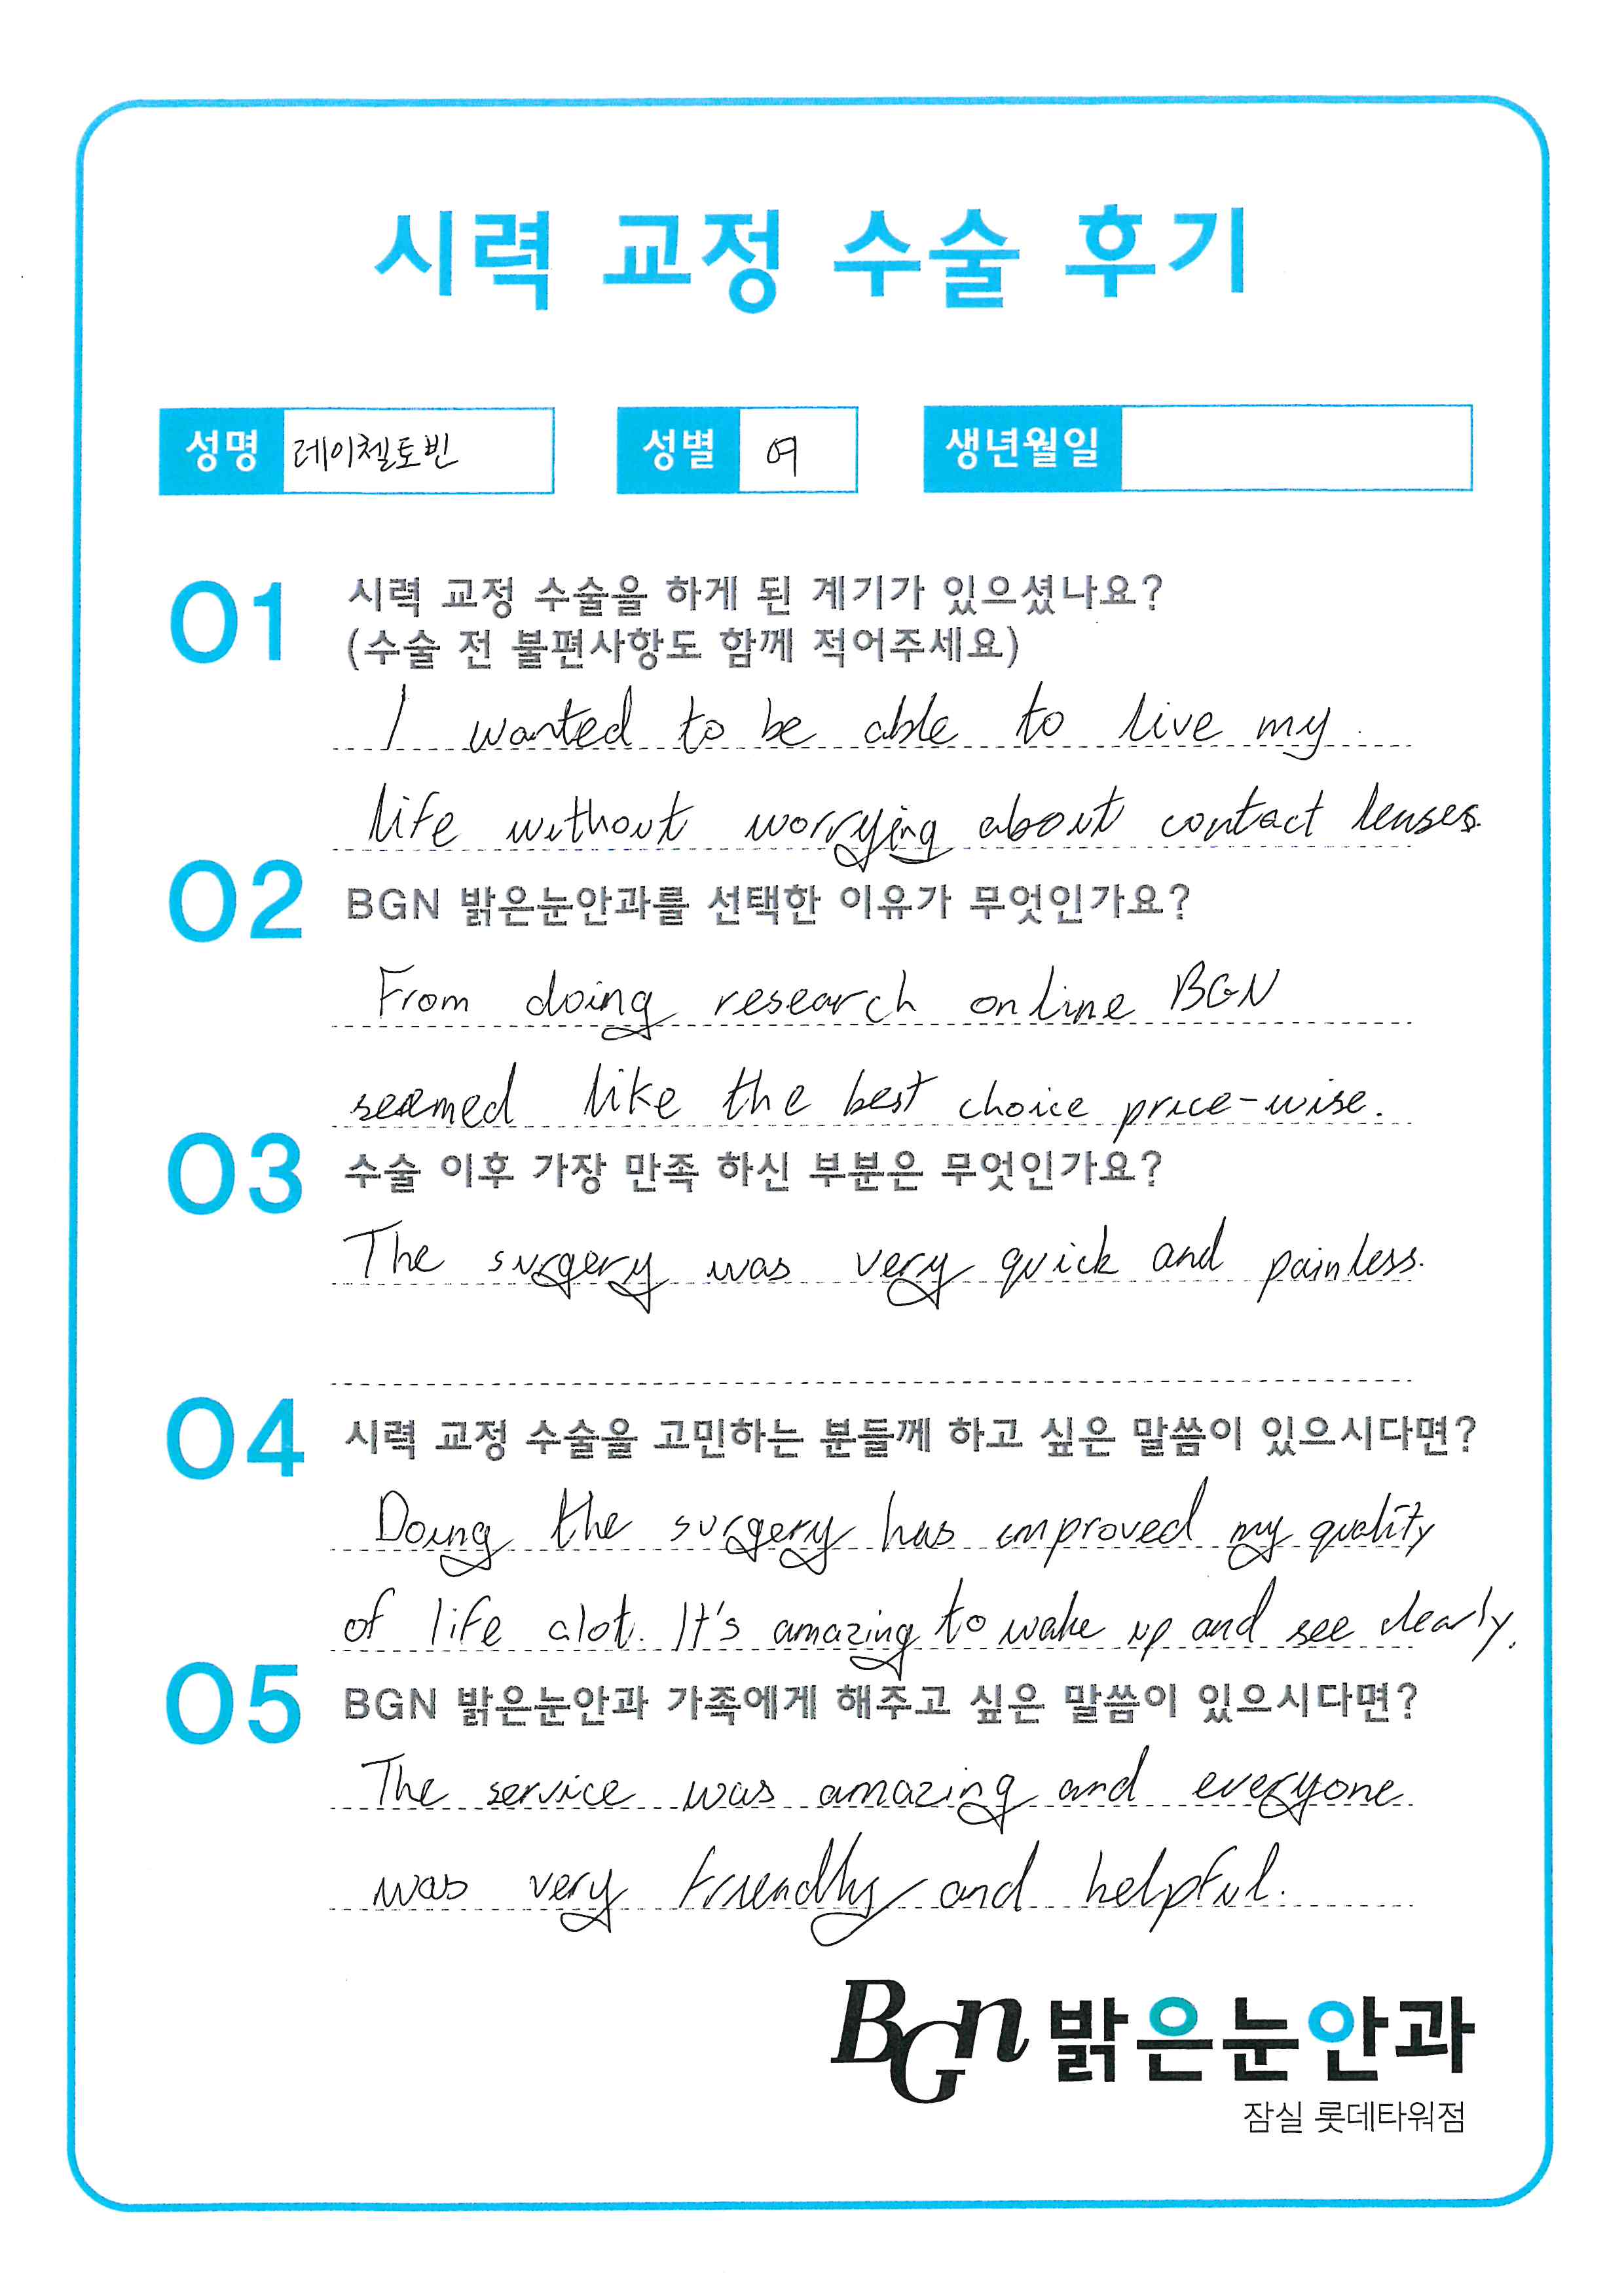 시력 교정 수술 후기
성명 레이첼토빈 성별 여 생년월일
01 시력 교정 수술을 하게 된 계기가 있으셨나요?
(수술 전 불편사항도 함께 적어주세요)
I wanted to be able to live my
life without worrying about contact lenses.
02 BGN 밝은눈안과를 선택한 이유가 무엇인가요?
From doing research online BGN
seemed like the best choice price-wise.
03 수술 이후 가장 만족 하신 부분은 무엇인가요?
The surgery was very quick and painless.
04 시력 교정 수술을 고민하는 분들께 하고 싶은 말씀이 있으시다면?
Doing the surgery has improved my quality
of life alot. It's amazing to wake up and see clearly.
05 BGN 밝은눈안과 가족에게 해주고 싶은 말씀이 있으시다면?
The service was amazing and everyone
was very friendly and helpful.
BGn 밝은눈안과
잠실 롯데타워점